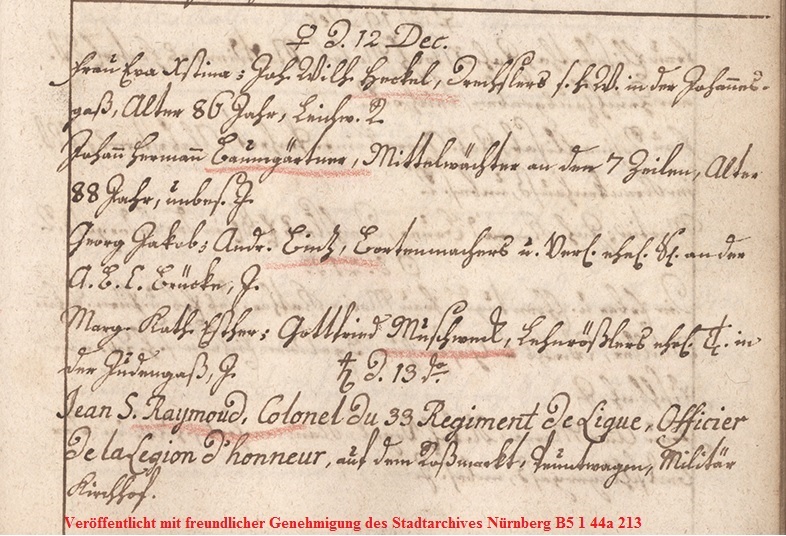 ♀ d. 12 Dec.
Frau Eva Xstina: Joh. Wilh. Heckel, Drechslers s. h. W. in der Johannes-
gaß, Alter 86 Jahr, Leichw. 2.
Johann Hermann Baumgärtner, Mittelwächter an den 7 Zeilen, Alter
88 Jahr, unbes. J.
Georg Jakob: Andr. Bintz, Bortenmachers u. Verl. ehel. Sl. an der
A. B. C. Brücke, J.
Marg. Kath. Esther: Gottfried Muschweck, Lehnrößlers ehel. T. in
der Judengaß, J. ♄ d. 13. do.
Jean S. Raymoud, Colonel du 33 Regiment de Ligue, Officier
de la Legion d'honneur, auf dem Roßmarkt, Militär
Kirchhof.
Veröffentlicht mit freundlicher Genehmigung des Stadtarchives Nürnberg B5 1 44a 213